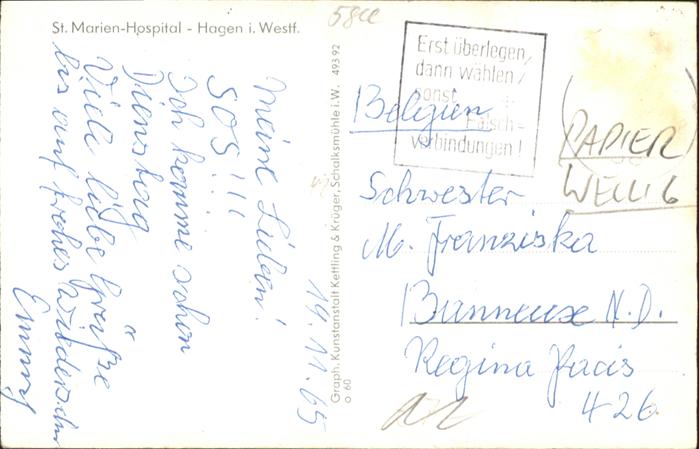 St. Marien-Hospital - Hagen i. Westf.
19. 11. 65
Meine Lieben!
SOS!!!
Ich komme schon
Dienstag
Viele liebe Grüße
bis auf frohes Wiedersehn
Emmy
Graph. Kunstanstalt Kettling & Krüger, Schalksmühle i. W. 493 92
o 60
Erst überlegen,
dann wählen,
sonst
Falsch-
verbindungen!
Belgien
PAPIER
WELLIG
Schwester
M. Franziska
Banneux N. D.
Regina Pacis
426